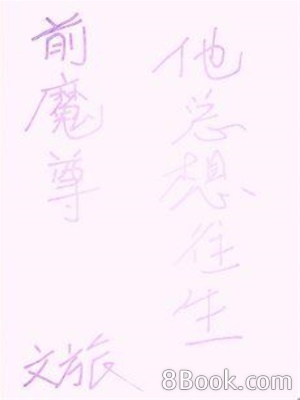 前魔尊
他总想往生
文旅
8Book.com